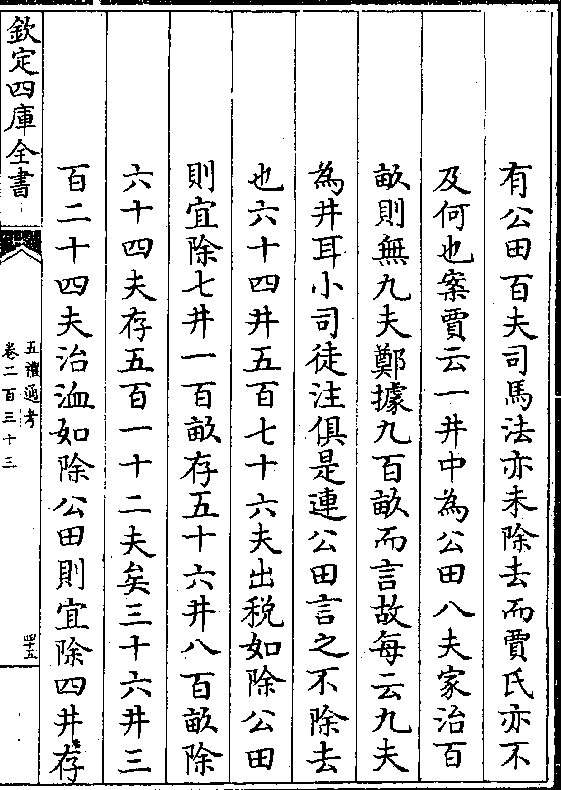 有公田百夫司馬法亦未除去而賈氏亦不
及何也案賈云一井中為公田八夫家治百
畝則無九夫鄭據九百畝而言故每云九夫
為井耳小司徒注俱是連公田言之不除去
也六十四井五百七十六夫出税如除公田
則宜除七井一百畝存五十六井八百畝除
六十四夫存五百一十二夫矣三十六井三
百二十四夫治洫如除公田則宜除四井存
欽定四庫全書
五禮通考
卷二百三十三
四十五